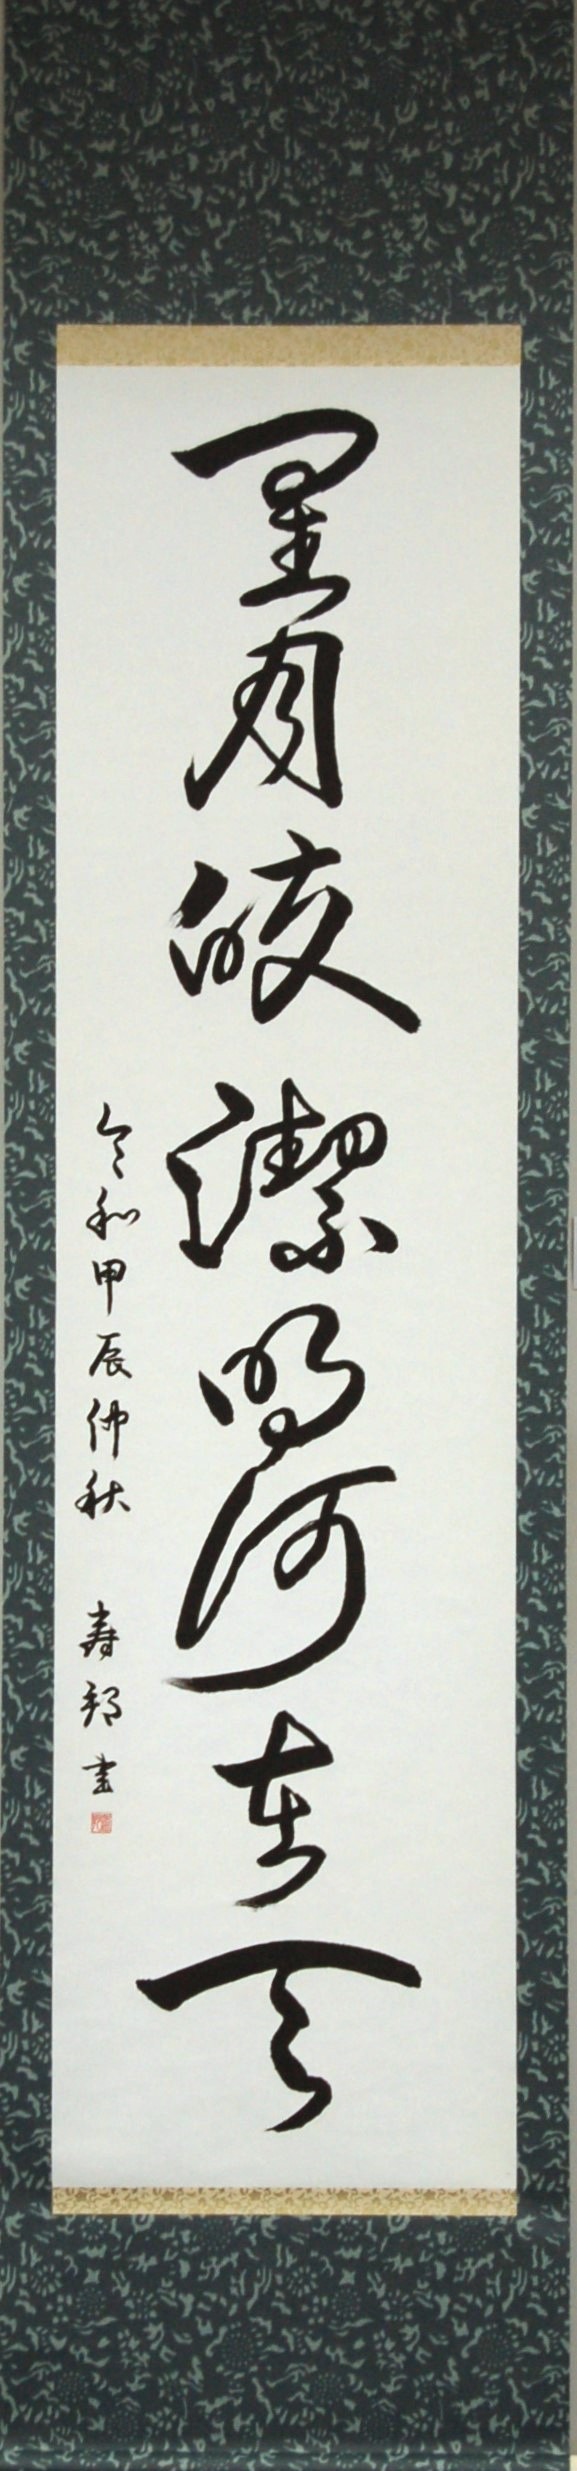 星月皎潔明河在天
令和甲辰仲秋 寿邦書